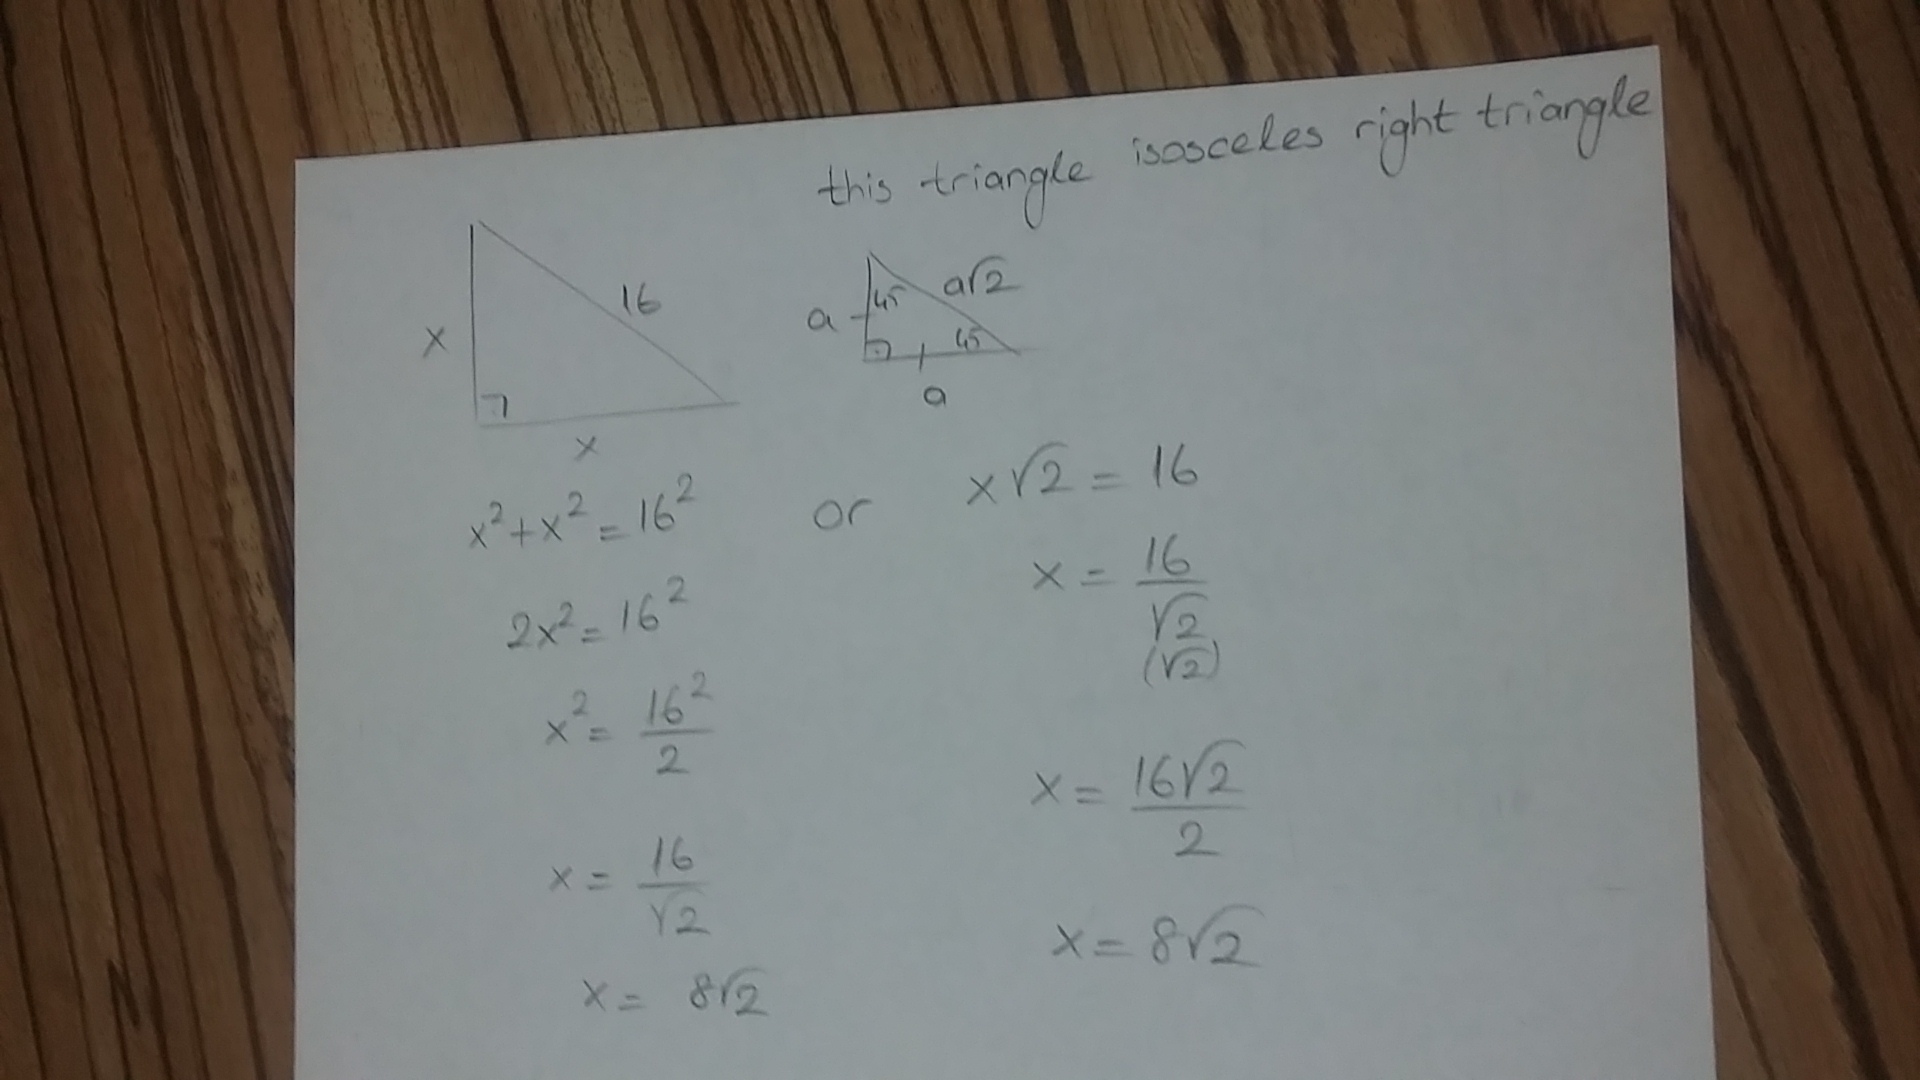 this triangle isosceles right triangle
x
16
x
a
45
a√2
45
a
x²+x²=16²
2x²=16²
x²=16²/2
x=16/√2
x=8√2
or
x√2=16
x=16/√2
(√2)
x=16√2/2
x=8√2